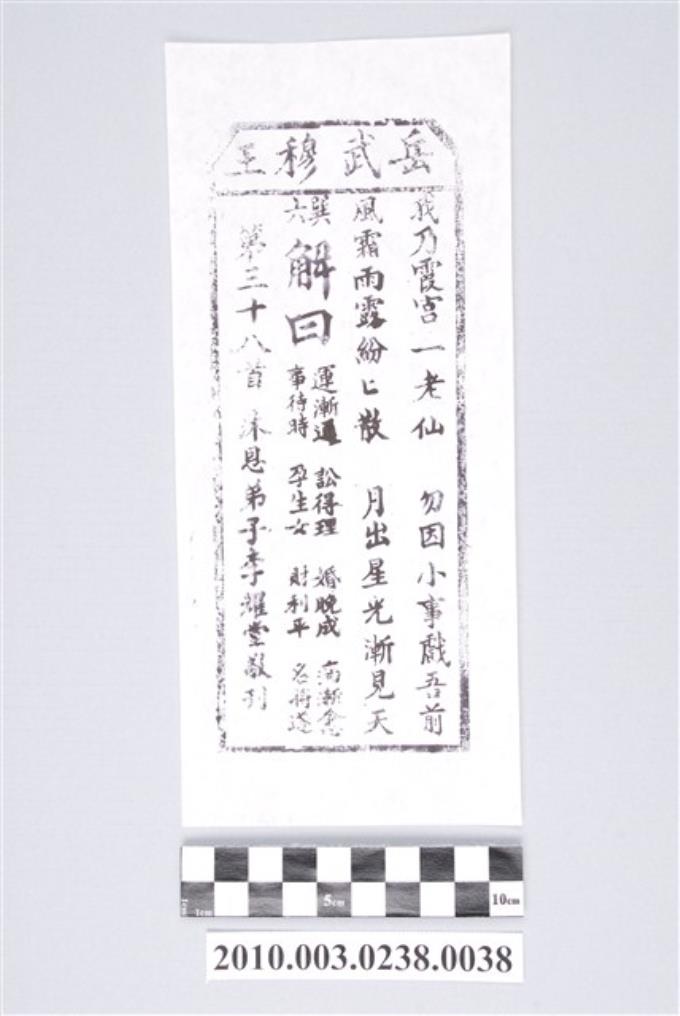 岳武穆王
我乃霞宮一老仙 勿因小事戲吾前
風霜雨露紛匕散 月出星光漸見天
巽六
解曰
運漸通 訟得理 婚晚成 病漸愈
事待時 孕生女 財利平 名將遂
第三十八首 沐恩弟子李耀堂敬刊
5cm
10cm
1cm
1cm
2010.003.0238.0038